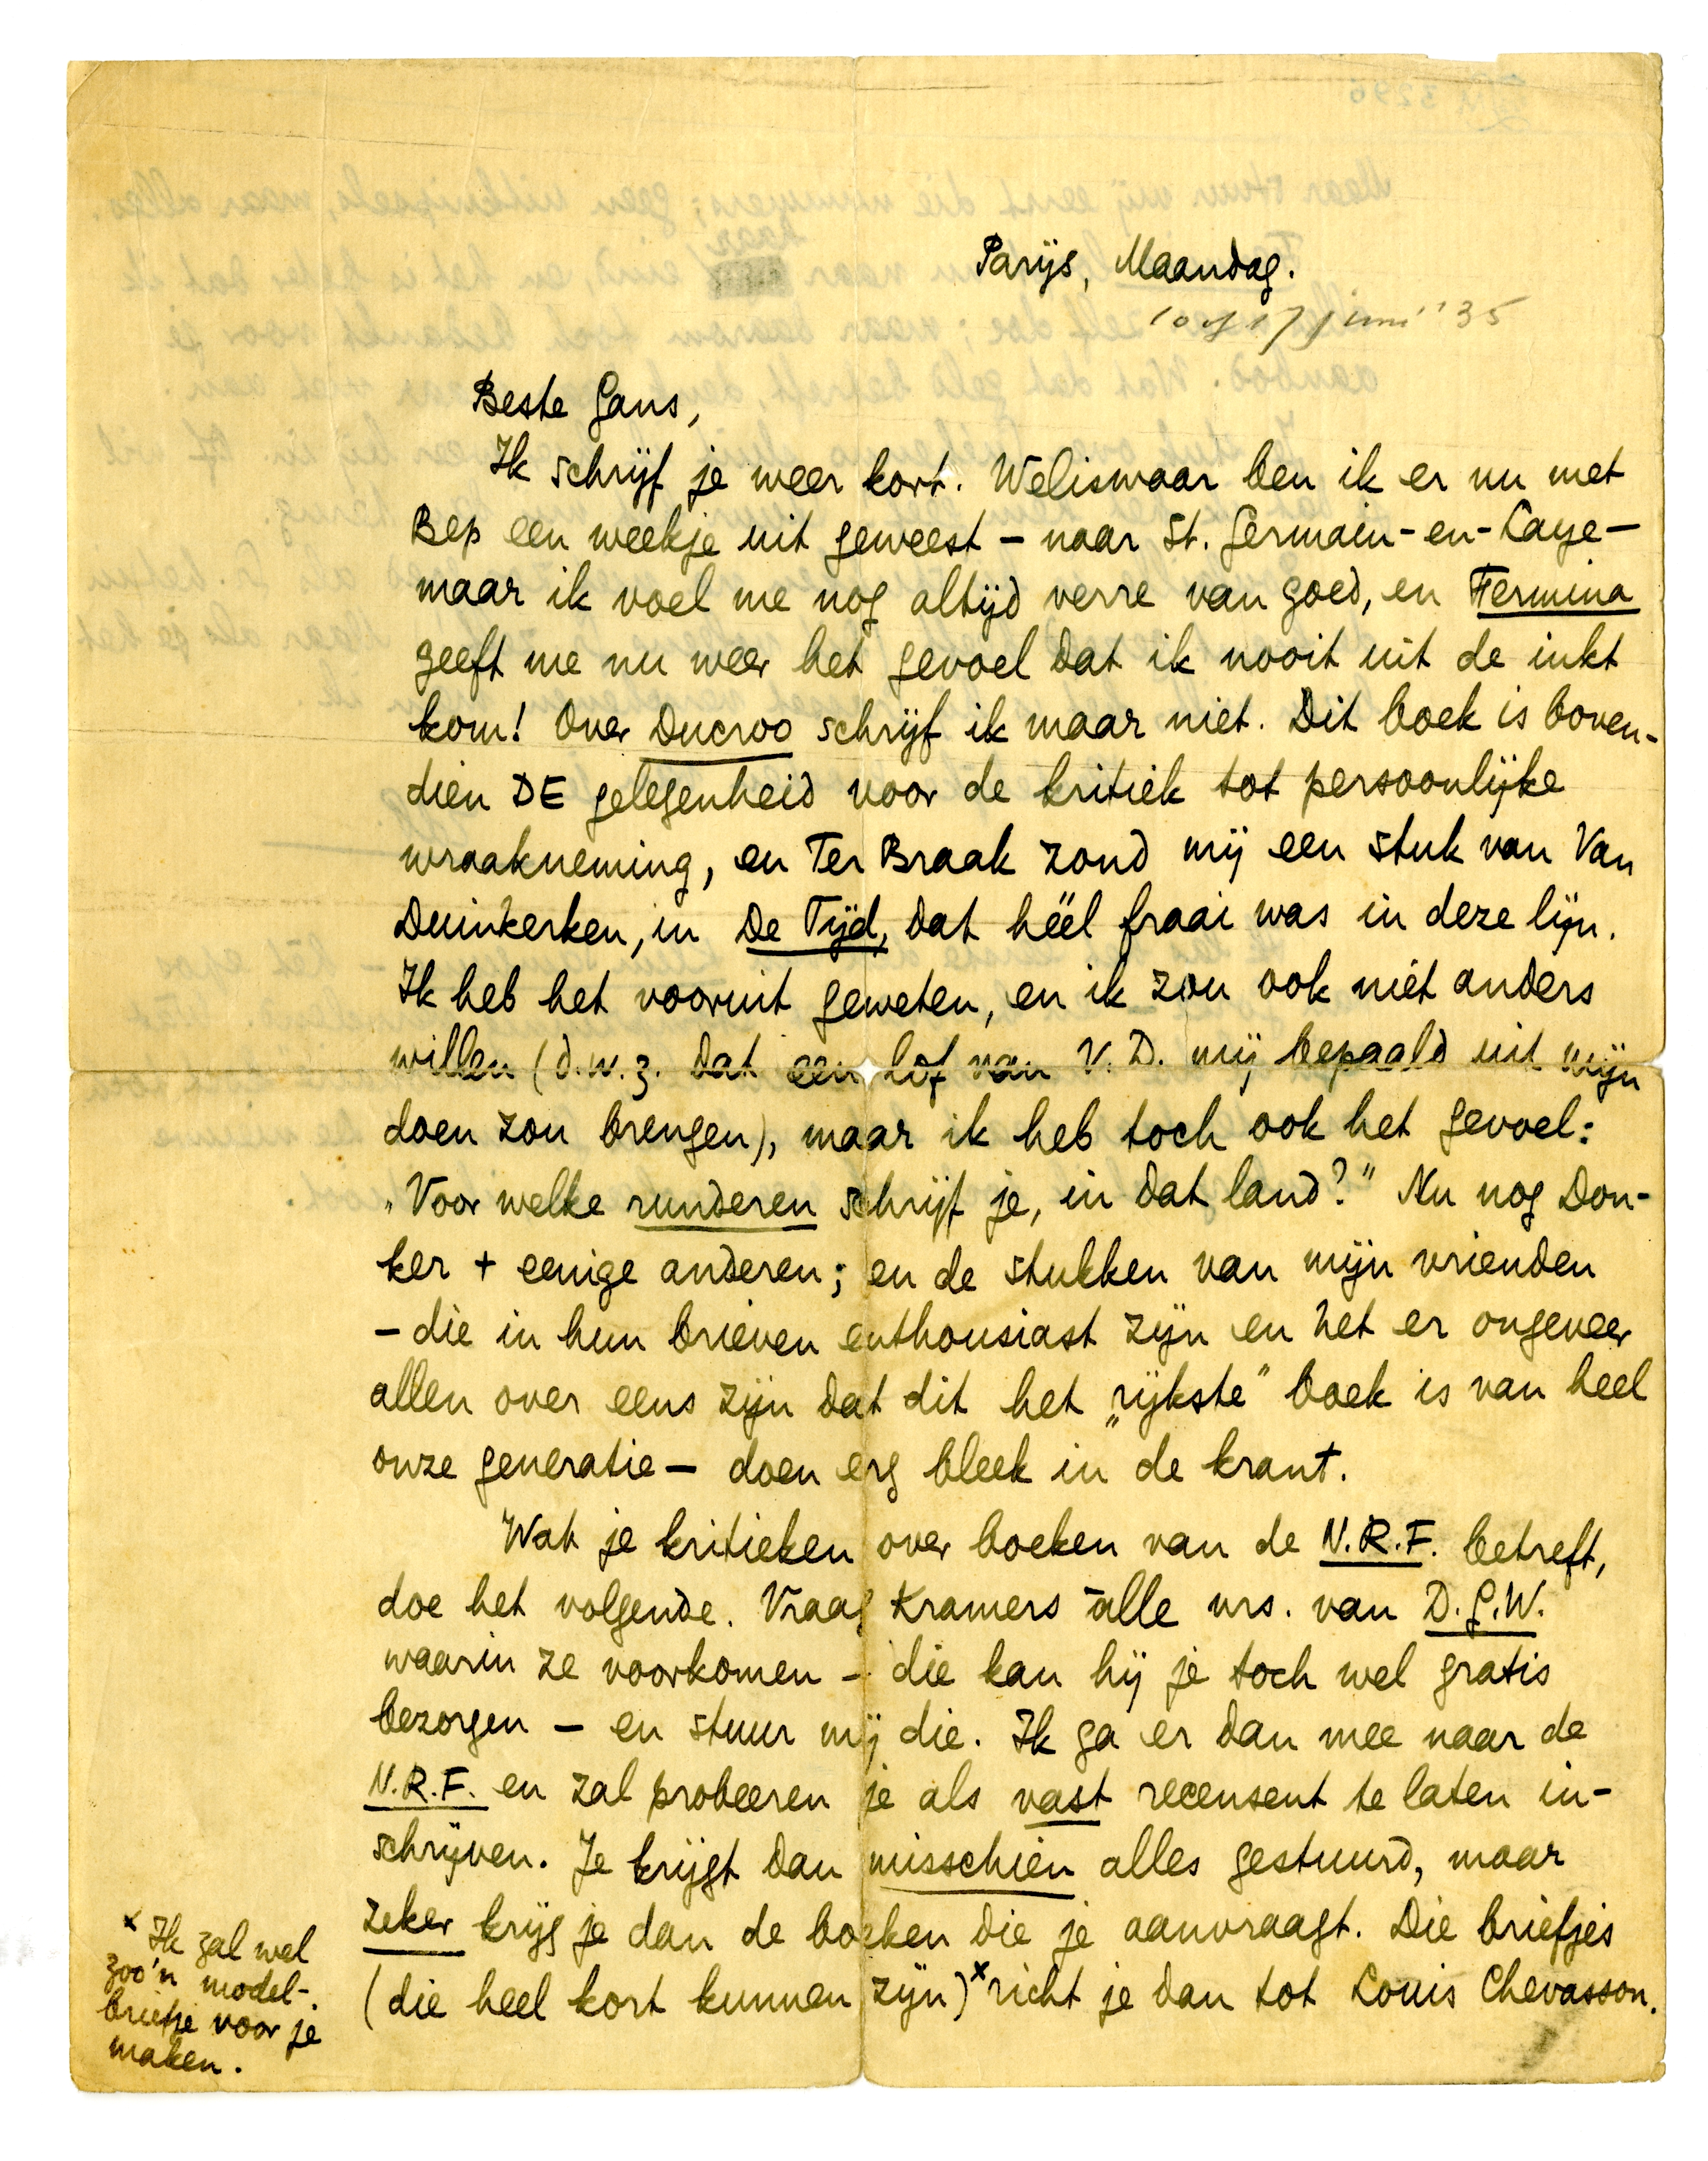 Parijs, Maandag.
10 of 17 juni '35
Beste Gans,
Ik schrijf je weer kort. Weliswaar ben ik er nu met
Bep een weekje uit geweest – naar St. Germain-en-Laye –
maar ik voel me nog altijd verre van goed, en Fermina
geeft me nu weer het gevoel dat ik nooit uit de inkt
kom! Over Ducroo schrijf ik maar niet. Dit boek is boven-
dien DE gelegenheid voor de kritiek tot persoonlijke
wraakneming, en Ter Braak zond mij een stuk van Van
Duinkerken, in De Tijd, dat héél fraai was in deze lijn.
Ik heb het vooruit geweten, en ik zou ook niet anders
willen (d.w.z. dat een lof van V.D. mij bepaald uit mijn
doen zou brengen), maar ik heb toch ook het gevoel:
„Voor welke runderen schrijf je, in dat land?” Nu nog Don-
ker + eenige anderen; en de stukken van mijn vrienden
– die in hun brieven enthousiast zijn en het er ongeveer
allen over eens zijn dat dit het „rijkste” boek is van heel
onze generatie – doen erg bleek in de krant.
Wat je kritieken over boeken van de N.R.F. betreft,
doe het volgende. Vraag Kramers álle nrs. van D.G.W.
waarin ze voorkomen – die kan hij je toch wel gratis
bezorgen – en stuur mij die. Ik ga er dan mee naar de
N.R.F. en zal probeeren je als vast recensent te laten in-
schrijven. Je krijgt dan misschien alles gestuurd, maar
zeker krijg je dan de boeken die je aanvraagt. Die briefjes
(die heel kort kunnen zijn)× richt je dan tot Louis Chevasson.
× Ik zal wel
zoo'n model-
briefje voor je
maken.